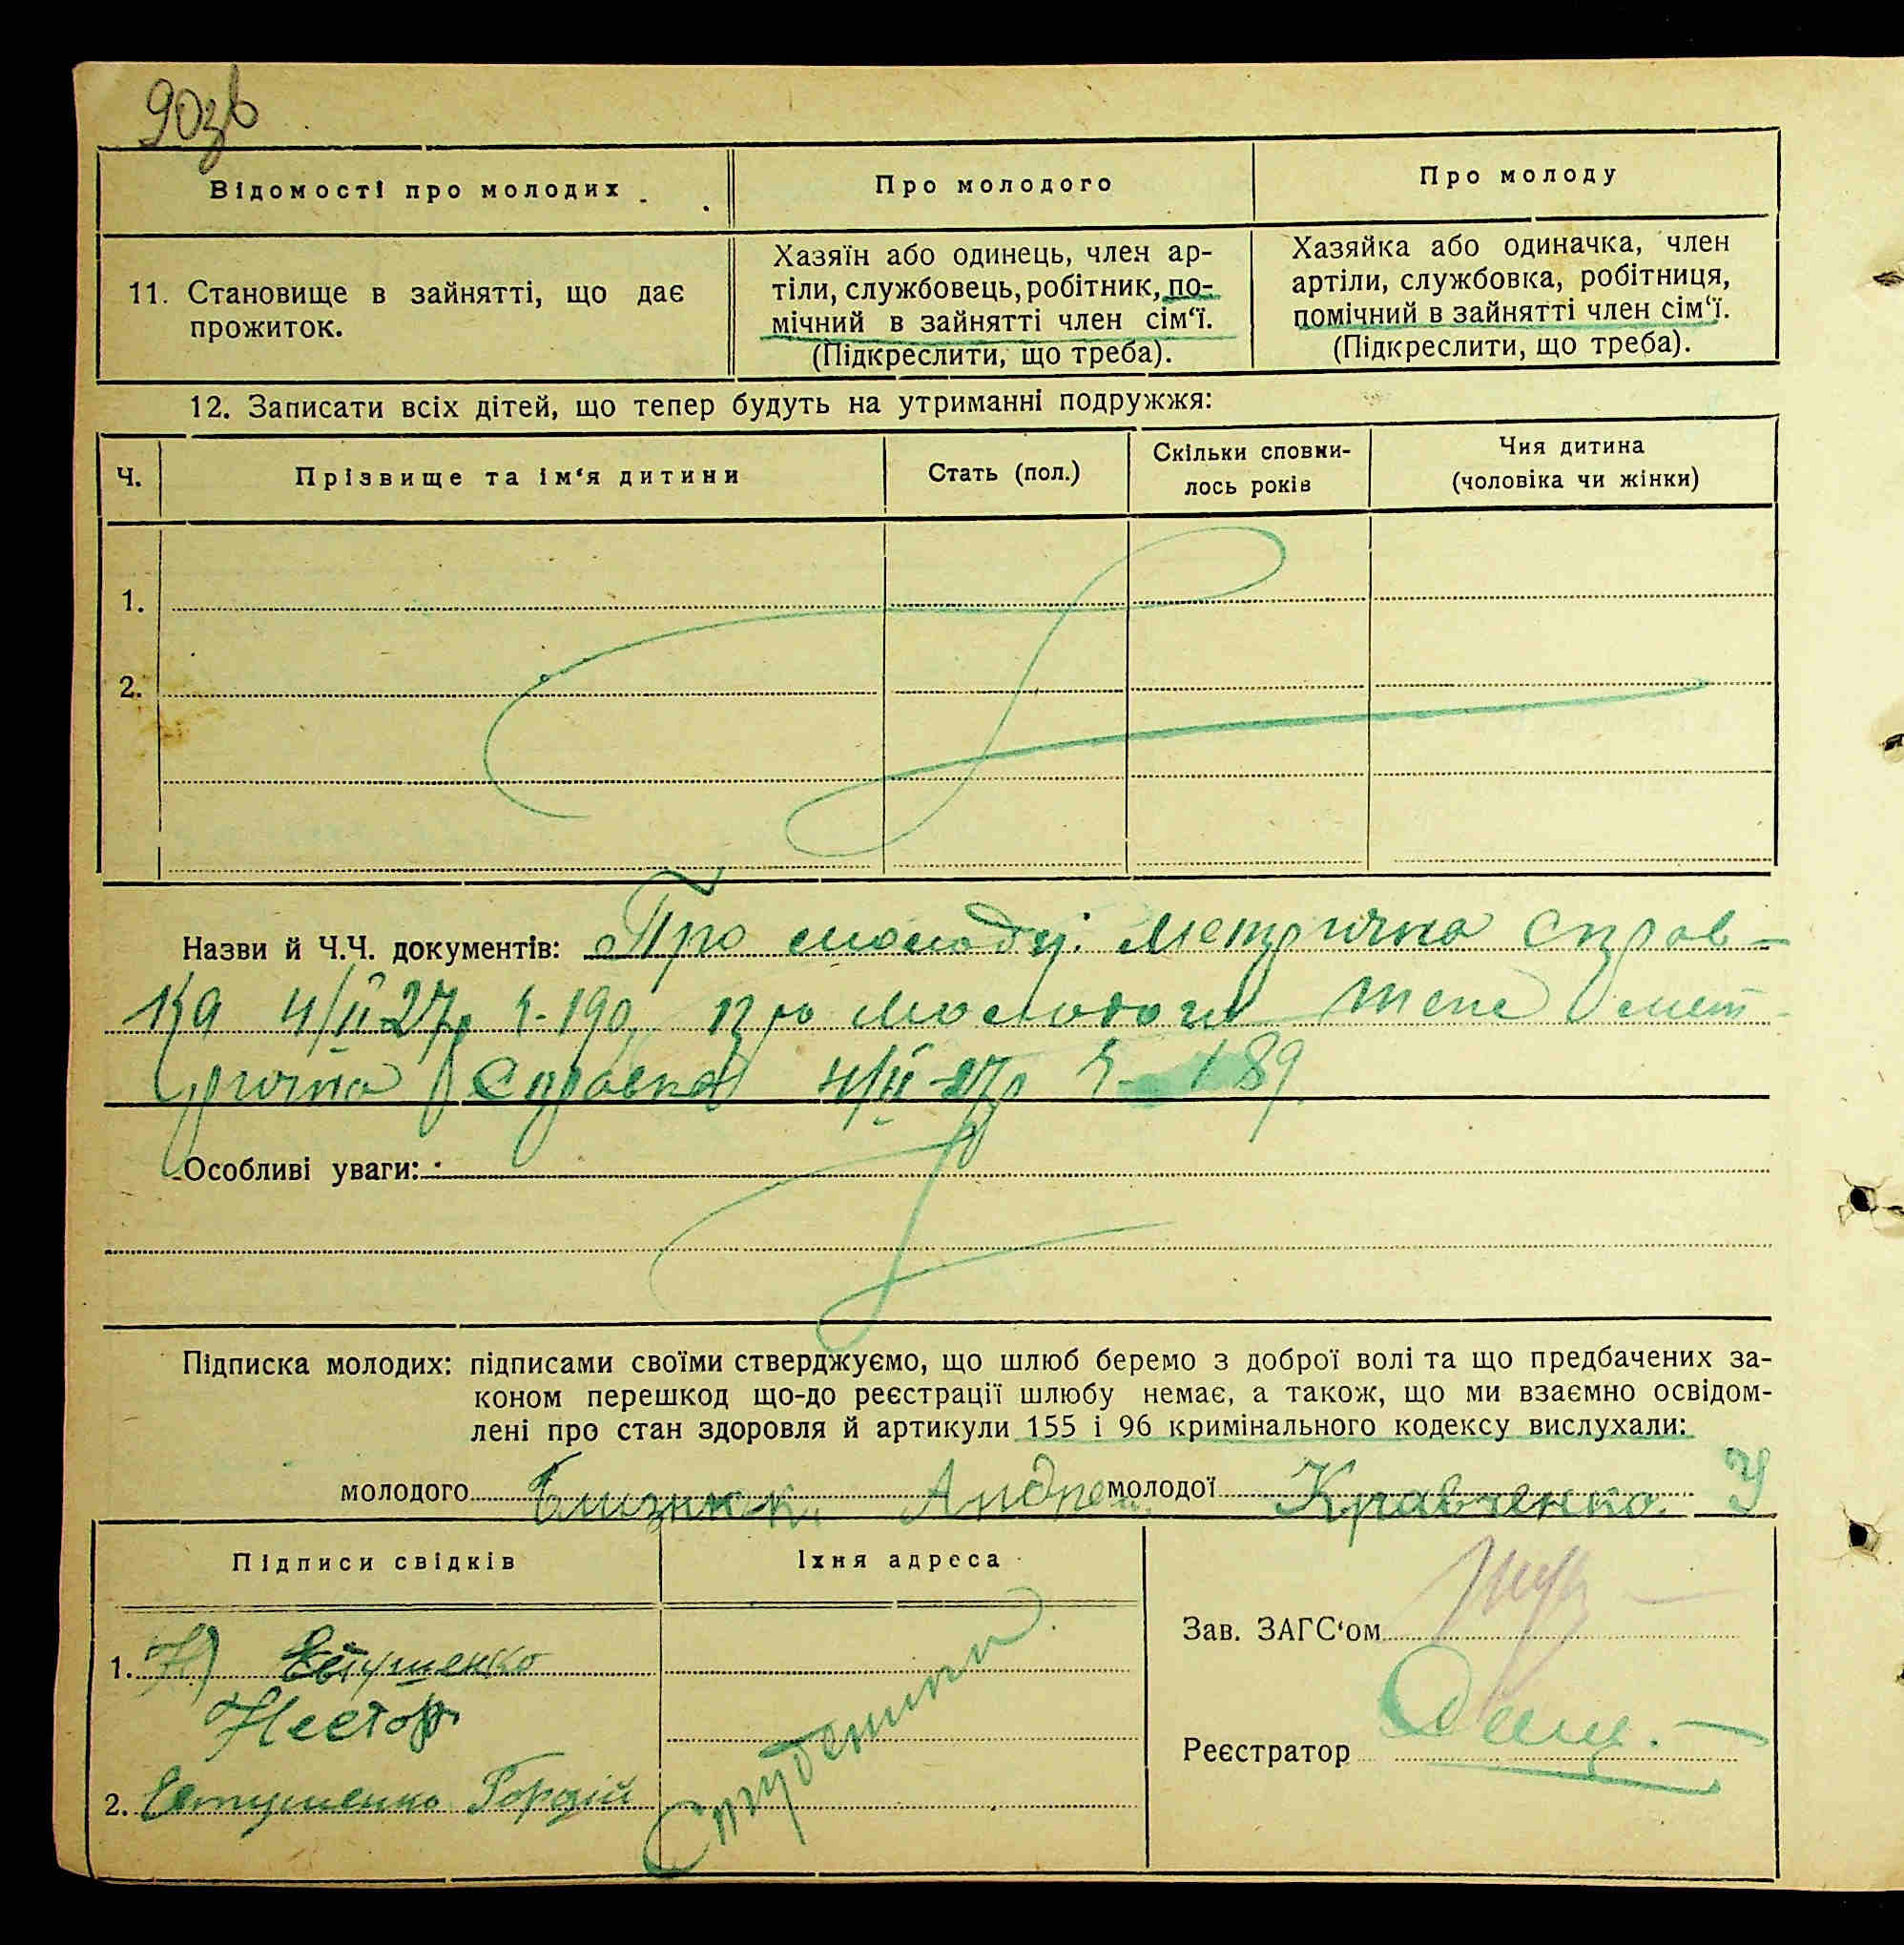 90зв
Відомості про молодих
Про молодого
Про молоду
11. Становище в зайнятті, що дає
прожиток.
Хазяїн або одинець, член ар-
тіли, службовець, робітник, по-
мічний в зайнятті член сім‘ї.
(Підкреслити, що треба).
Хазяйка або одиначка, член
артіли, службовка, робітниця,
помічний в зайнятті член сім‘ї.
(Підкреслити, що треба).
12. Записати всіх дітей, що тепер будуть на утриманні подружжя:
Ч.
Прізвище та ім‘я дитини
Стать (пол.)
Скільки сповни-
лось років
Чия дитина
(чоловіка чи жінки)
1.
2.
Назви й Ч.Ч. документів: Про молоду: Метрична справ-
ка 4/II-27р ч-190, про молодого теж мет-
рична Справка 4/II-27р ч-189
Особливі уваги:
Підписка молодих: підписами своїми стверджуємо, що шлюб беремо з доброї волі та що предбачених за-
коном перешкод що-до реєстрації шлюбу немає, а також, що ми взаємно освідом-
лені про стан здоровля й артикули 155 і 96 кримінального кодексу вислухали:
молодого Близнюк Андрей молодої Кравченко У
Підписи свідків
Їхня адреса
1. Н) Євтушенко
Нестор
2. Євтушенко Гордій
Студеники
Зав. ЗАГС‘ом
Реєстратор